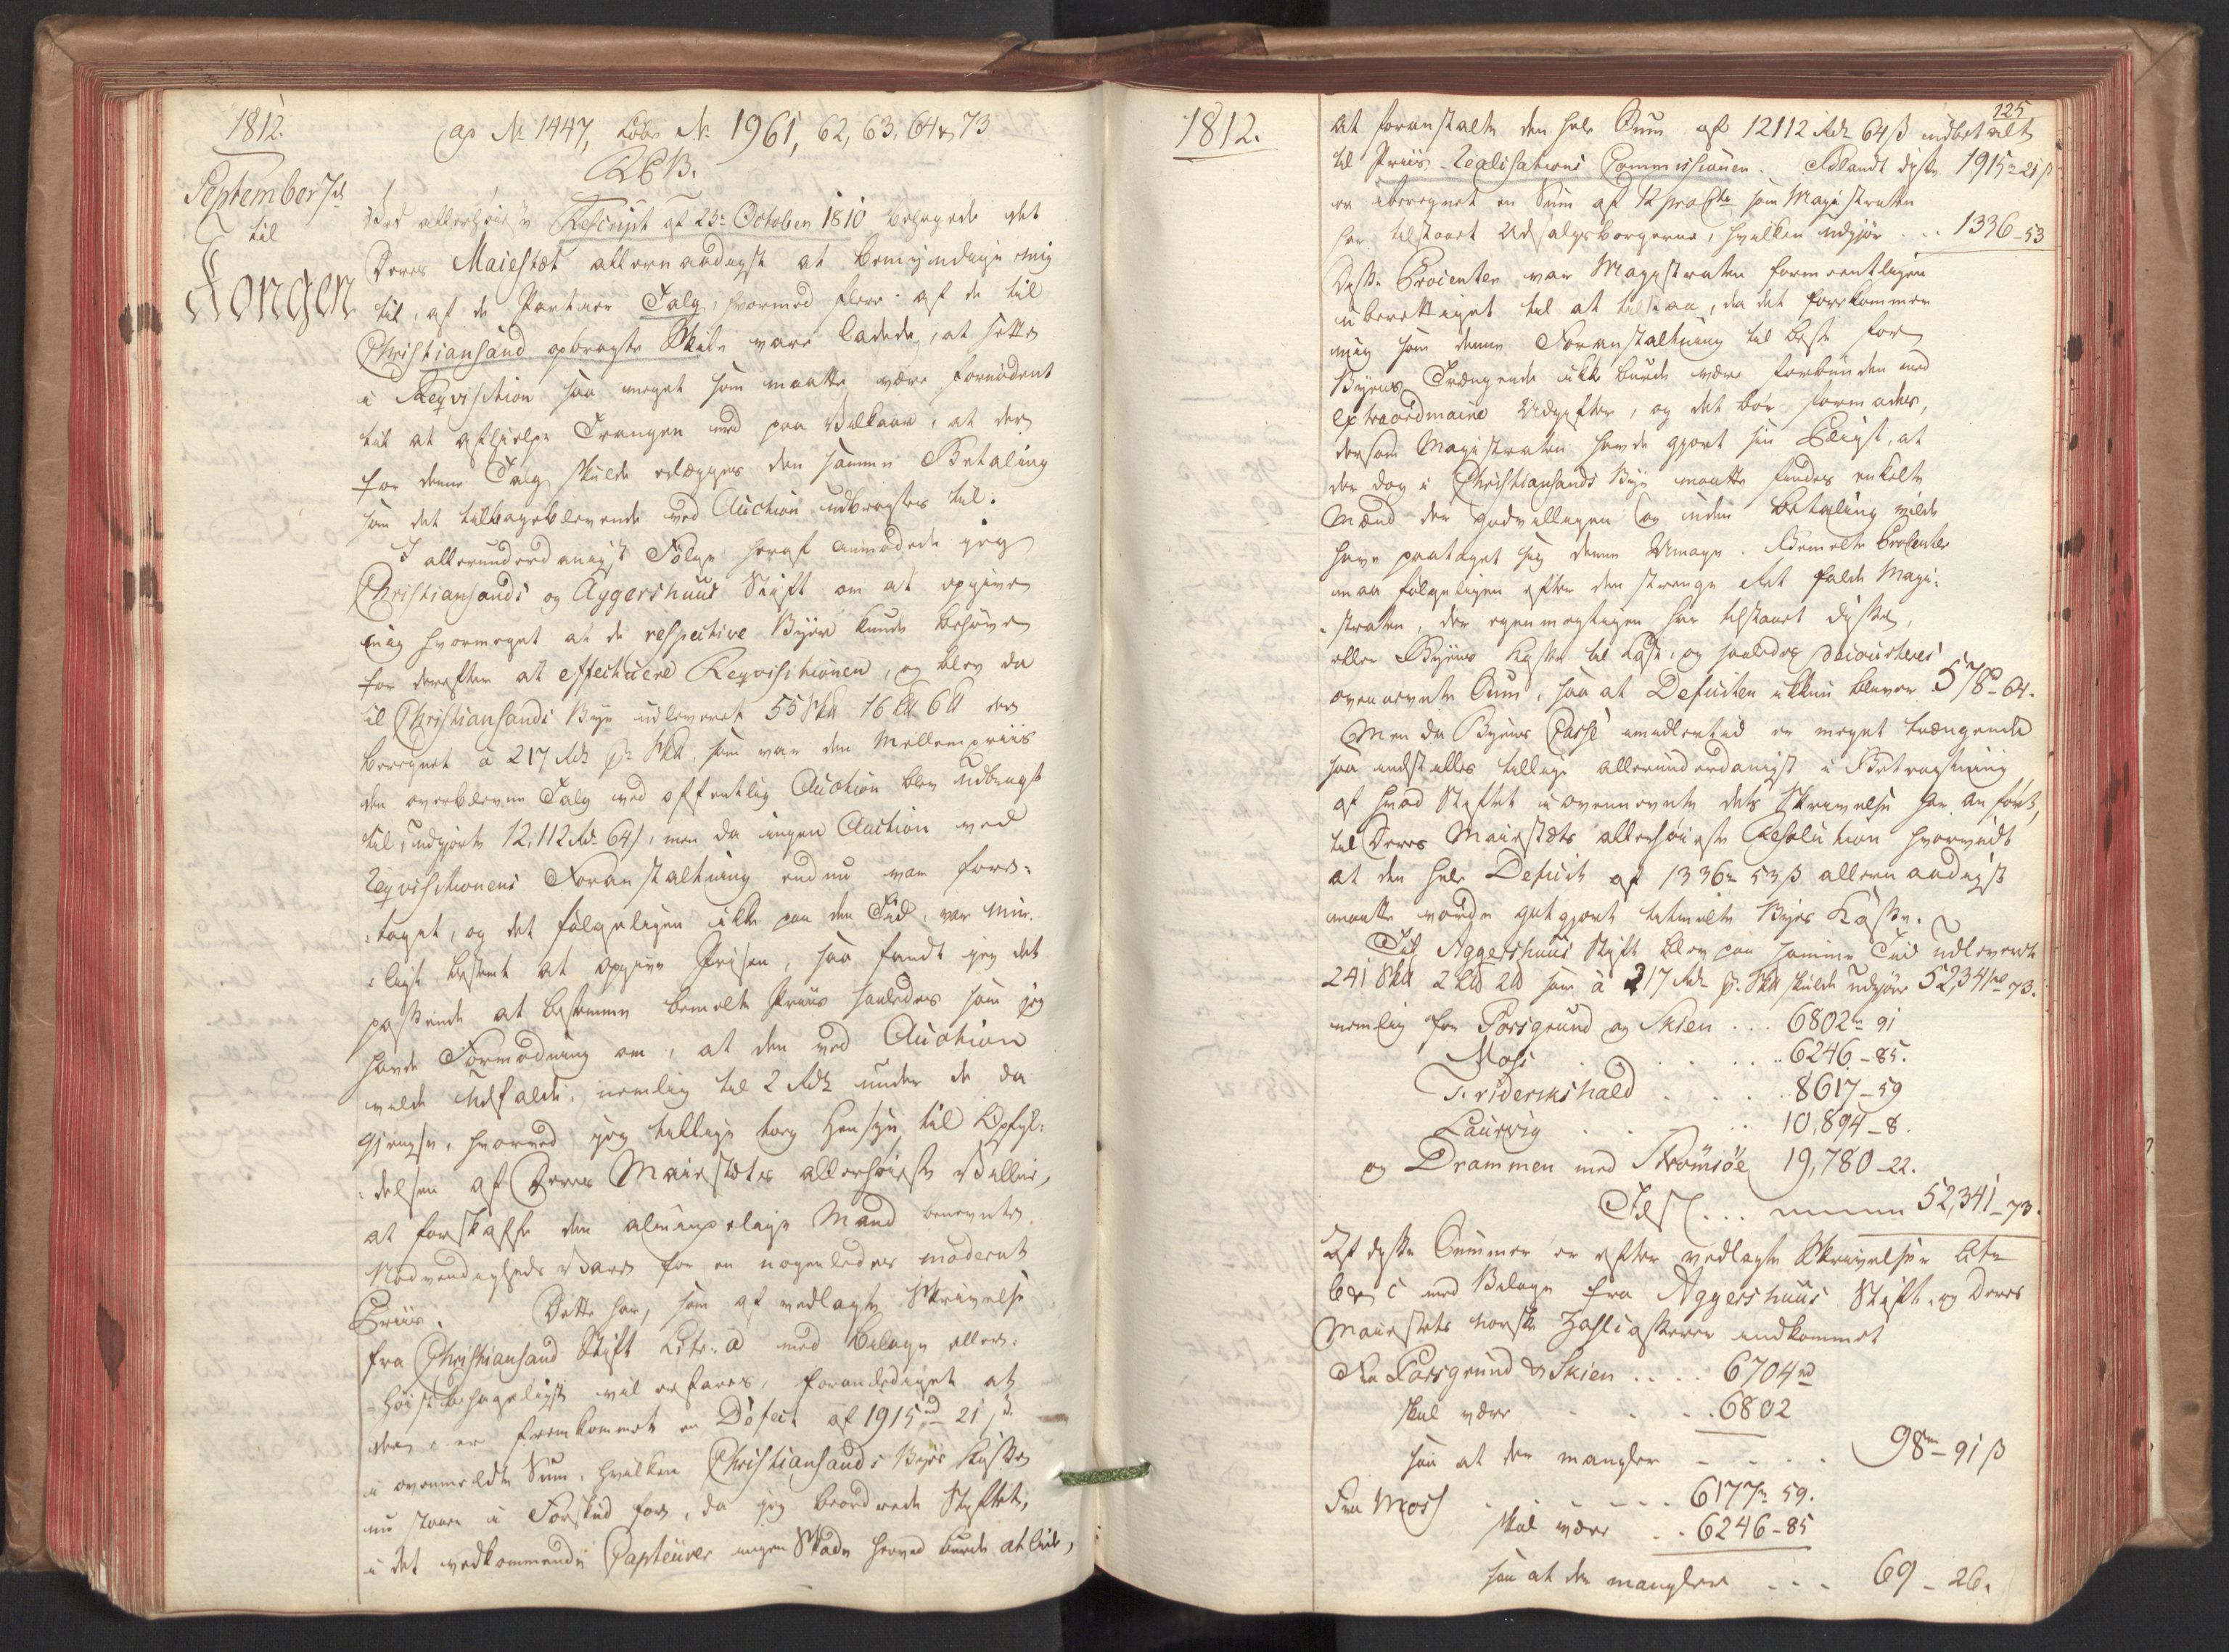 1812.
ap No 1447, Lobe No 1961, 62, 63, 64 & 73
September 7d
til
Kongen
Ved allerhøieste Rescript af 23de October 1810 behagede det
Deres Maiestæt allernaadigst at bemyndige mig
til, af de Partier Talg, hvormed flere af de til
Christiansand opbragte Skibe vare ladede, at sette
i Reqvisition saa meget som maatte være fornødent
til at afhielpe Trangen med paa Vilkaar, at der
for denne Talg skulde erlægges den samme Betaling
som det tilbageblevende ved Auction udbragtes til.
I allerunderdanigst Følge heraf anmodede jeg
Christiansands og Aggershuus Stift om at opgive
mig hvormeget at de respective Byer kunde behøve
for derefter at effectuere Reqvisitionen, og blev da
til Christiansands Bye udleveret 55 Skd 16 Ld 6 d der
beregnet a 217 Rdr pr Skd, som var den Mellempriis
den overblevne Talg ved offentlig Auction blev udbragt
til, udgiorte 12,112 Rdr 64 s, men da ingen Auction ved
Reqvisitionens Foranstaltning endnu var fore-
taget, og det følgeligen ikke paa den Tid, var mue-
ligt bestemt at opgive Prisen, saa fandt jeg det
passende at bestemme bemelte Priis saaledes som jeg
havde Formodning om, at den ved Auction
vilde udfalde, nemlig til 2 Rdr under de da
giengse, hvorved jeg tillige tog Hensyn til Opfyl-
delsen af Deres Maiestætes allerhøieste Villie,
at forskaffe den almindelige Mand benevnte
Nødvendigheds Vare for en nogenledes moderat
Priis. Dette har, som af vedlagte Skrivelse
fra Christiansand Stift Litr. a med Bilage aller-
høistbehageligst vil erfares, foranlediget at
der er fremkommet en Defect af 1915 rd 21 s
i ovenmeldte Sum, hvilken Christiansands Byes Kasse
nu staaer i Forskud for, da jeg beordrede Stiftet,
i det vedkommende Capteurer ingen Skade herved burde at lide,
1812.
125
at foranstalte den hele Sum af 12112 Rdr 64 ß indbetalt
til Priis-Realisations Commissionen. Iblandt disse 1915 - 21 ß
er iberegnet en Sum af 12 proCto som Magistraten
har tilstaaet Udsalgsborgerne, hvilken udgiør .. 1336 - 53
Disse Procenter var Magistraten formeentligen
uberettiget til at tilstaae, da det forekommer
mig som denne Foranstaltning til beste for
Byens Trængende ikke burde være forbunden med
extraordinaire Udgifter, og det bør formodes,
dersom Magistraten havde giort sin Pligt, at
der dog i Christiansands Bye maatte findes enkelte
Mænd der godvilligen og uden Betaling vilde
have paataget sig denne Umage. Bemelte Procenter
maa følgeligen efter den strenge Ret falde Magi-
straten, der egenmegtigen har tilstaaet disse,
eller Byens Kasse til Last, og saaledes decourteres
ovennevnte Sum, saa at Deficiten ikkun bliver 578 - 64.
Men da Byens Casse imidlertid er meget trængende
saa indstilles tillige allerunderdanigst i Betragtning
af hvad Stiftet i ovennevnte dets Skrivelse har anført,
til Deres Maiestæts allerhøieste Resolution hvorvidt
at den hele Deficit af 1336 - 53 ß allernaadigst
maatte vorde godtgiort bemelte Byes Kasse.
Til Aggershuus Stift blev paa samme Tid udleveret
241 Skd 2 Ld 2 d som a 217 Rdr pr. Skd skulde udgiøre 52,341 rd 73.
nemlig for Porsgrund og Skien ... 6802 - 91
Moss ..... 6246 - 85.
Friderikshald .... 8617 - 59
Laurvig .... 10,894 - 8.
og Drammen med Strømsöe 19,780 - 22.
Tils. ... 52,341 - 73.
Af disse Summer er efter vedlagte Skrivelser Litr
b & c med Bilage fra Aggershuus Stift, og Deres
Maiestæts norske Zahlcasserer indkommet
Fra Porsgrund & Skien .... 6704 rd
skal være ... 6802
saa at der mangler .... 98 - 91 ß
Fra Moss ..... 6177 - 59.
skal være .. 6246 - 85
saa at der mangler ... 69 - 26.